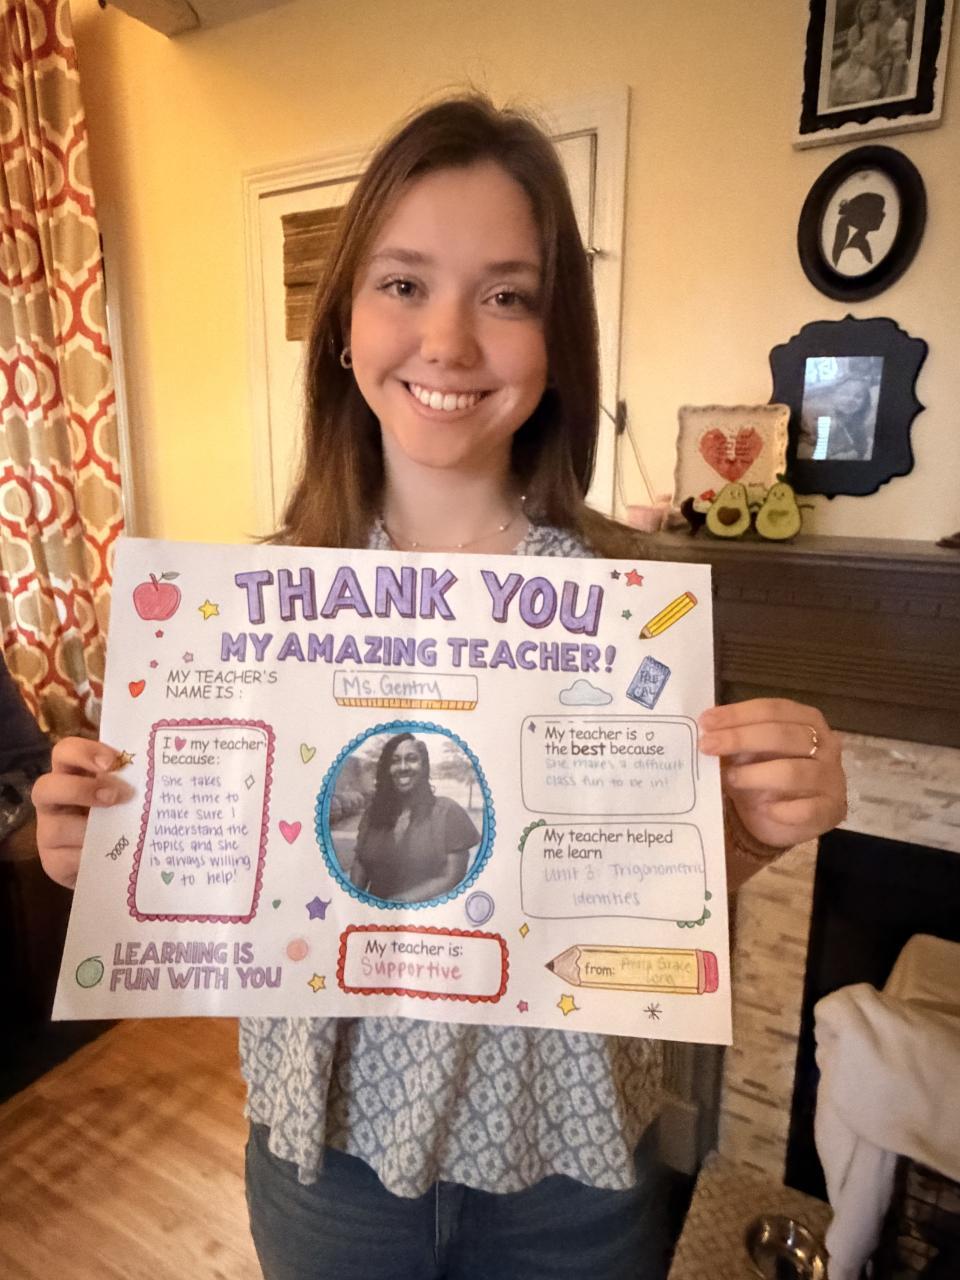 THANK YOU
MY AMAZING TEACHER!
MY TEACHER'S
NAME IS:
Ms. Gentry
PRE
CAL
I my teacher
because:
She takes
the time to
make sure I
understand the
topics and she
is always willing
to help!
My teacher is
the best because
She makes a difficult
class fun to be in!
My teacher helped
me learn
Unit 3: Trigonometric
Identities
LEARNING IS
FUN WITH YOU
My teacher is:
Supportive
from: Grace